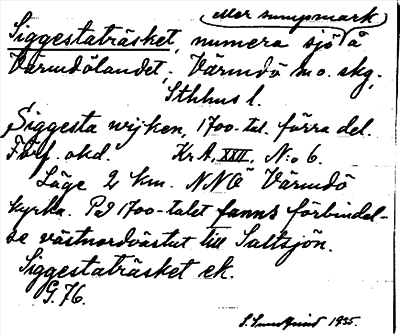 eller sumpmark
Siggestaträsket, numera sjö å
Värmdölandet, Värmdö m.o. skg,
Sthlms l.
Siggesta wijken, 1700-tal. förra del.
Förf. okd. Kr A, XXII, N:o 6.
Läge 2 km. NNÖ Värmdö
kyrka. På 1700-talet fanns förbindel-
se västnordvästut till Saltsjön.
Siggestaträsket ek.
G. 76.
S. Sundquist 1935.